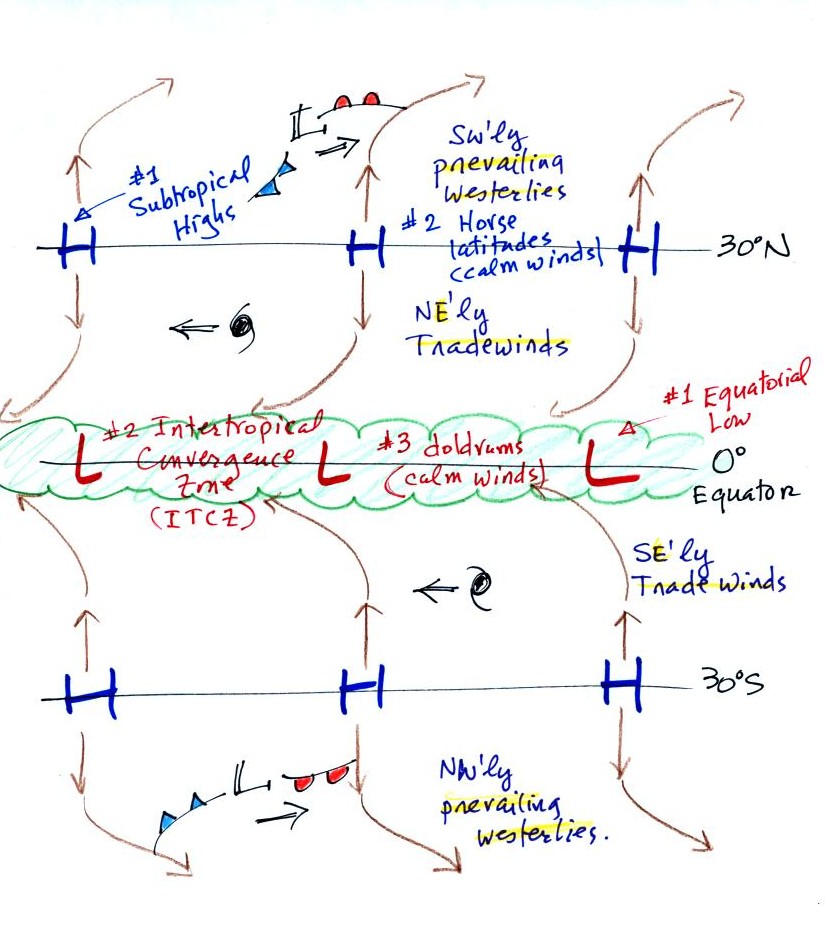 L
SW'ly
prevailing
Westerlies
#1
Subtropical
Highs
#2 Horse
latitudes
(calm winds)
H H H 30°N
NE'ly
Tradewinds
#1 Equatorial
Low
#2 Intertropical
Convergence
Zone
(ITCZ)
#3 doldrums
(calm winds)
L L L 0°
Equator
SE'ly
Trade Winds
H H H 30°S
L
NW'ly
prevailing
westerlies.